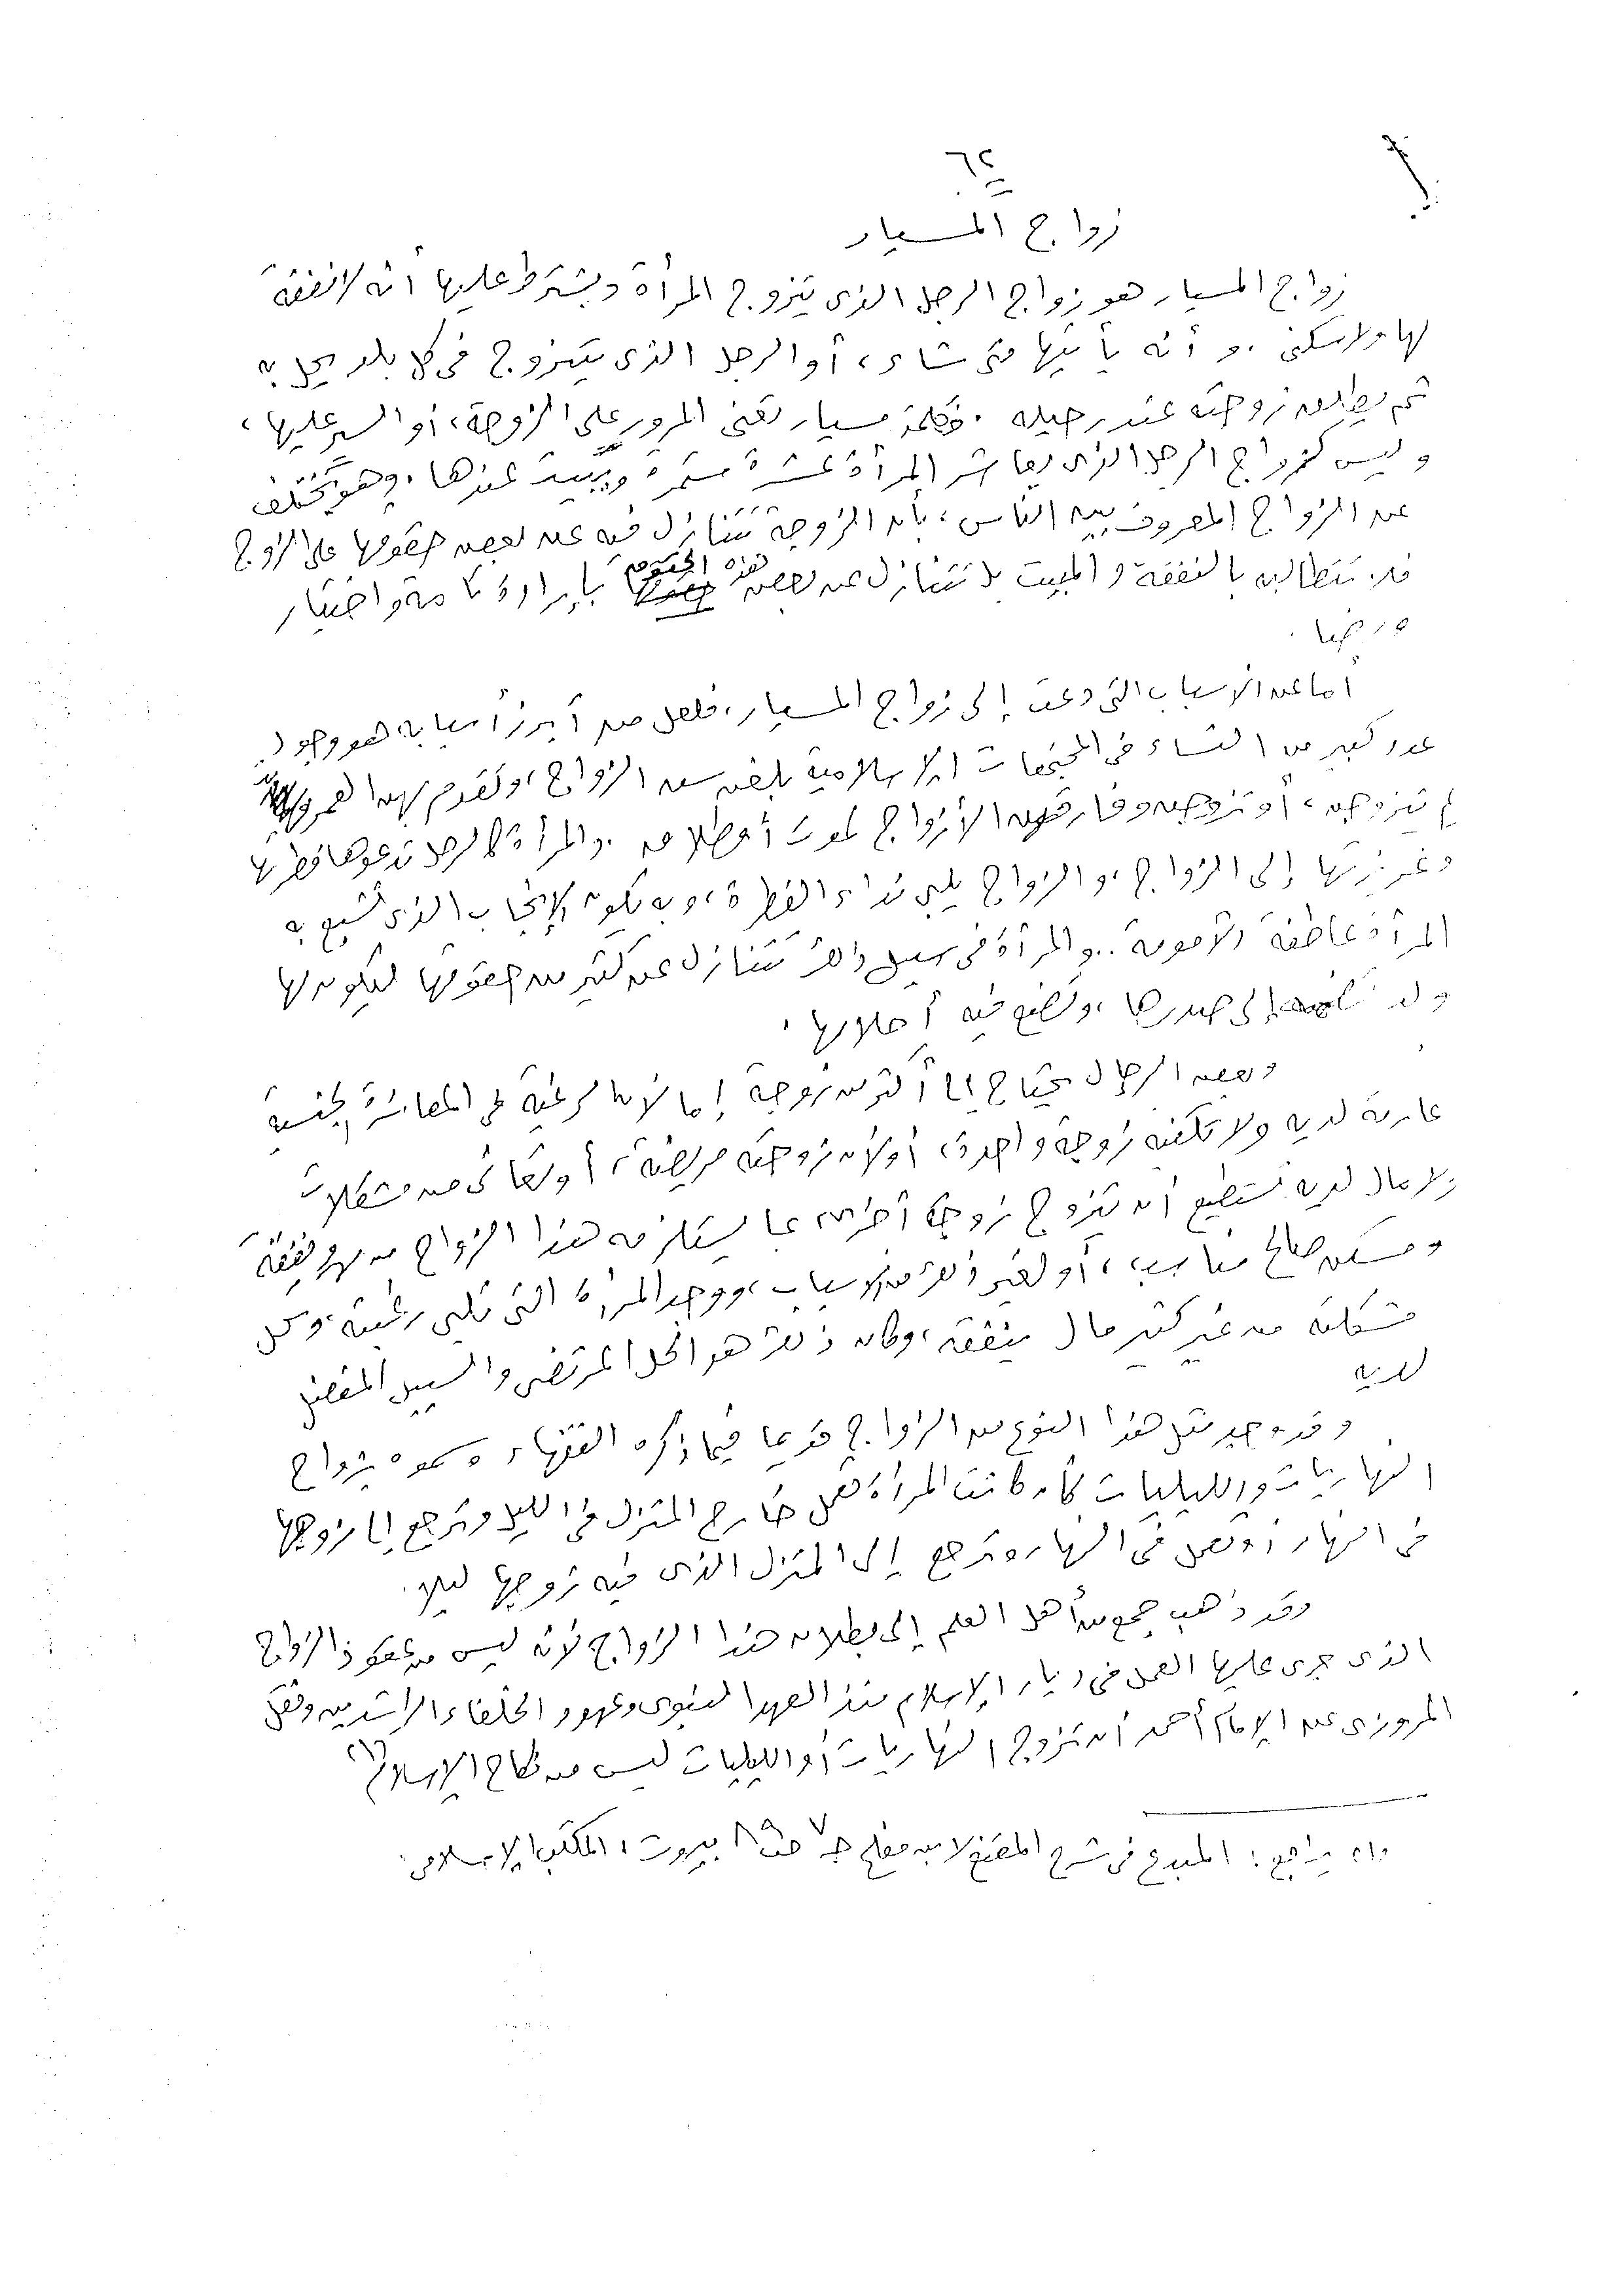 ٦٢
زواج المسيار
زواج المسيار هو زواج الرجل الذى يتزوج المرأة ويشترط عليها أنه لا نفقة
لها ولا سكنى . و أنه يأتيها متى شاء ، أو الرجل الذى يتزوج فى كل بلد يحل به
ثم يطلق زوجته عند رحيله . فكلمة مسيار تعنى المرور على الزوجة ، أو السير عليها ،
وليس كزواج الرجل الذى يعاشر المرأة عشرة مستمرة ويبيت عندها . وهو يختلف
عن الزواج المعروف بين الناس ، بأن الزوجة تتنازل فيه عن بعض حقوقها على الزوج
فلا تتطالبه بالنفقة والمبيت بل تتنازل عن بعض هذه الحقوق بإرادة تامة واختيار
ورضا .
أما عن الأسباب التى دعت إلى زواج المسيار ، فلعل من أبرز أسبابه هو وجود
عدد كبير من النساء فى المجتمعات الإسلامية بلغن سن الزواج ، وتقدم بهن العمر
لم يتزوجن ، أو تزوجن وفارقهن الأزواج لموت أو طلاق . والمرأة كالرجل تدعوها فطرتها
وغريزتها إلى الزواج ، والزواج يلبى نداء الفطرة ، وبه يكون الإنجاب الذى تشبع به
المرأة عاطفة الأمومة .. والمرأة فى سبيل ذلك تتنازل عن كثير من حقوقها ليكون لها
ولد تضمه إلى صدرها ، وتضع فيه أحلامها .
وبعض الرجال يحتاج إلى أكثر من زوجة إما لأن الرغبة فى المعاشرة الجنسية
عارمة لديه ولا تكفيه زوجة واحدة ، أو لأن زوجته مريضة ، أو تعانى من مشكلات
ولا مال لديه يستطيع أن يتزوج زوجة أخرى بما يستلزمه هذا الزواج من مهر ونفقة
ومسكن صالح مناسب ، أو لغير ذلك من الأسباب ، ووجد المرأة التى تلبى رغبته ، وتحل
مشكلته من غير كثير مال ينفقه ، وكان ذلك هو الحل المرتضى والسبيل المفضل
لديه
وقد وجد مثل هذا النوع من الزواج قديما فيما ذكره الفقهاء وسموه بزواج
النهاريات والليليات كأن كانت المرأة تعمل خارج المنزل فى الليل وترجع إلى زوجها
فى النهار أو تعمل فى النهار وترجع إلى المنزل الذى فيه زوجها ليلا .
وقد ذهب جمع من أهل العلم إلى بطلان هذا الزواج لأنه ليس من عقود الزواج
الذى جرى عليها العمل فى ديار الإسلام منذ العهد النبوى وعهود الخلفاء الراشدين ونقل
المروزى عن الإمام أحمد أن تزوج النهاريات أو الليليات ليس من نكاح الإسلام (١)
(١) يراجع : المبدع فى شرح المقنع لابن مفلح جـ ٧ بيروت ، المكتب الإسلامى .